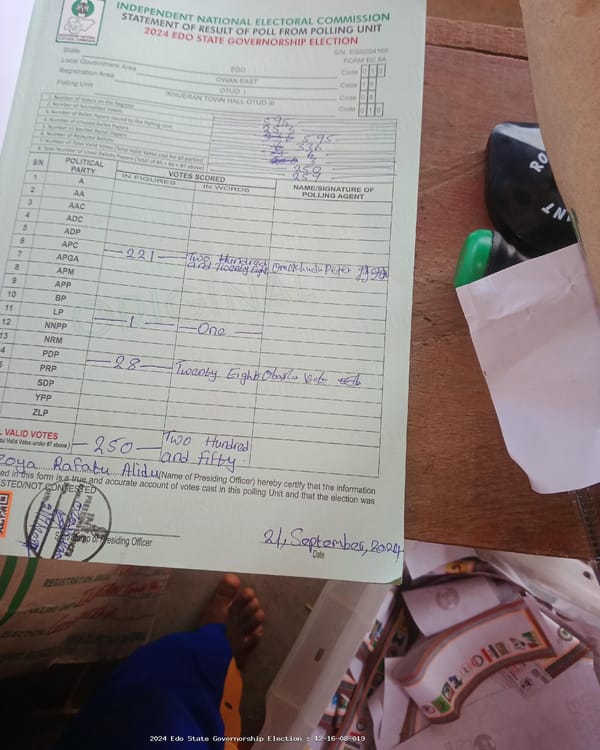 INDEPENDENT NATIONAL ELECTORAL COMMISSION
STATEMENT OF RESULT OF POLL FROM POLLING UNIT
2024 EDO STATE GOVERNORSHIP ELECTION
FORM EC 8A
State EDO Code
Local Government Area OWAN EAST Code
Registration Area OTUO I Code
Polling Unit IKHUERAN TOWN HALL OTUO III Code
1. Number of Voters on the Register 595
2. Number of Accredited Voters
3. Number of Ballot Papers Issued to the Polling Unit 595
4. Number of Unused Ballot Papers 336
5. Number of Spoiled Ballot Papers
6. Number of Rejected Ballots
7. Number of Total Valid Votes (Total Valid Votes cast for all parties) 250
8. Total Number of Used Ballot Papers (Total of #5 + #6 + #7 above) 259
S/N POLITICAL PARTY VOTES SCORED NAME/SIGNATURE OF POLLING AGENT
IN FIGURES IN WORDS
1 A
2 AA
3 AAC
4 ADC
5 ADP
6 APC 221 Two Hundred and Twenty Peter
7 APGA
8 APM
9 APP
10 BP
11 LP 1 One
12 NNPP
13 NRM
4 PDP 28 Twenty Eight
PRP
SDP
YPP
ZLP
VALID VOTES 250 Two Hundred and Fifty
Rafatu Alidu (Name of Presiding Officer) hereby certify that the information
in this form is a true and accurate account of votes cast in this polling Unit and that the election was
CONTESTED/NOT CONTESTED
of Presiding Officer
21, September, 2024
Date
2024 Edo State Governorship Election : 12-16-08-019